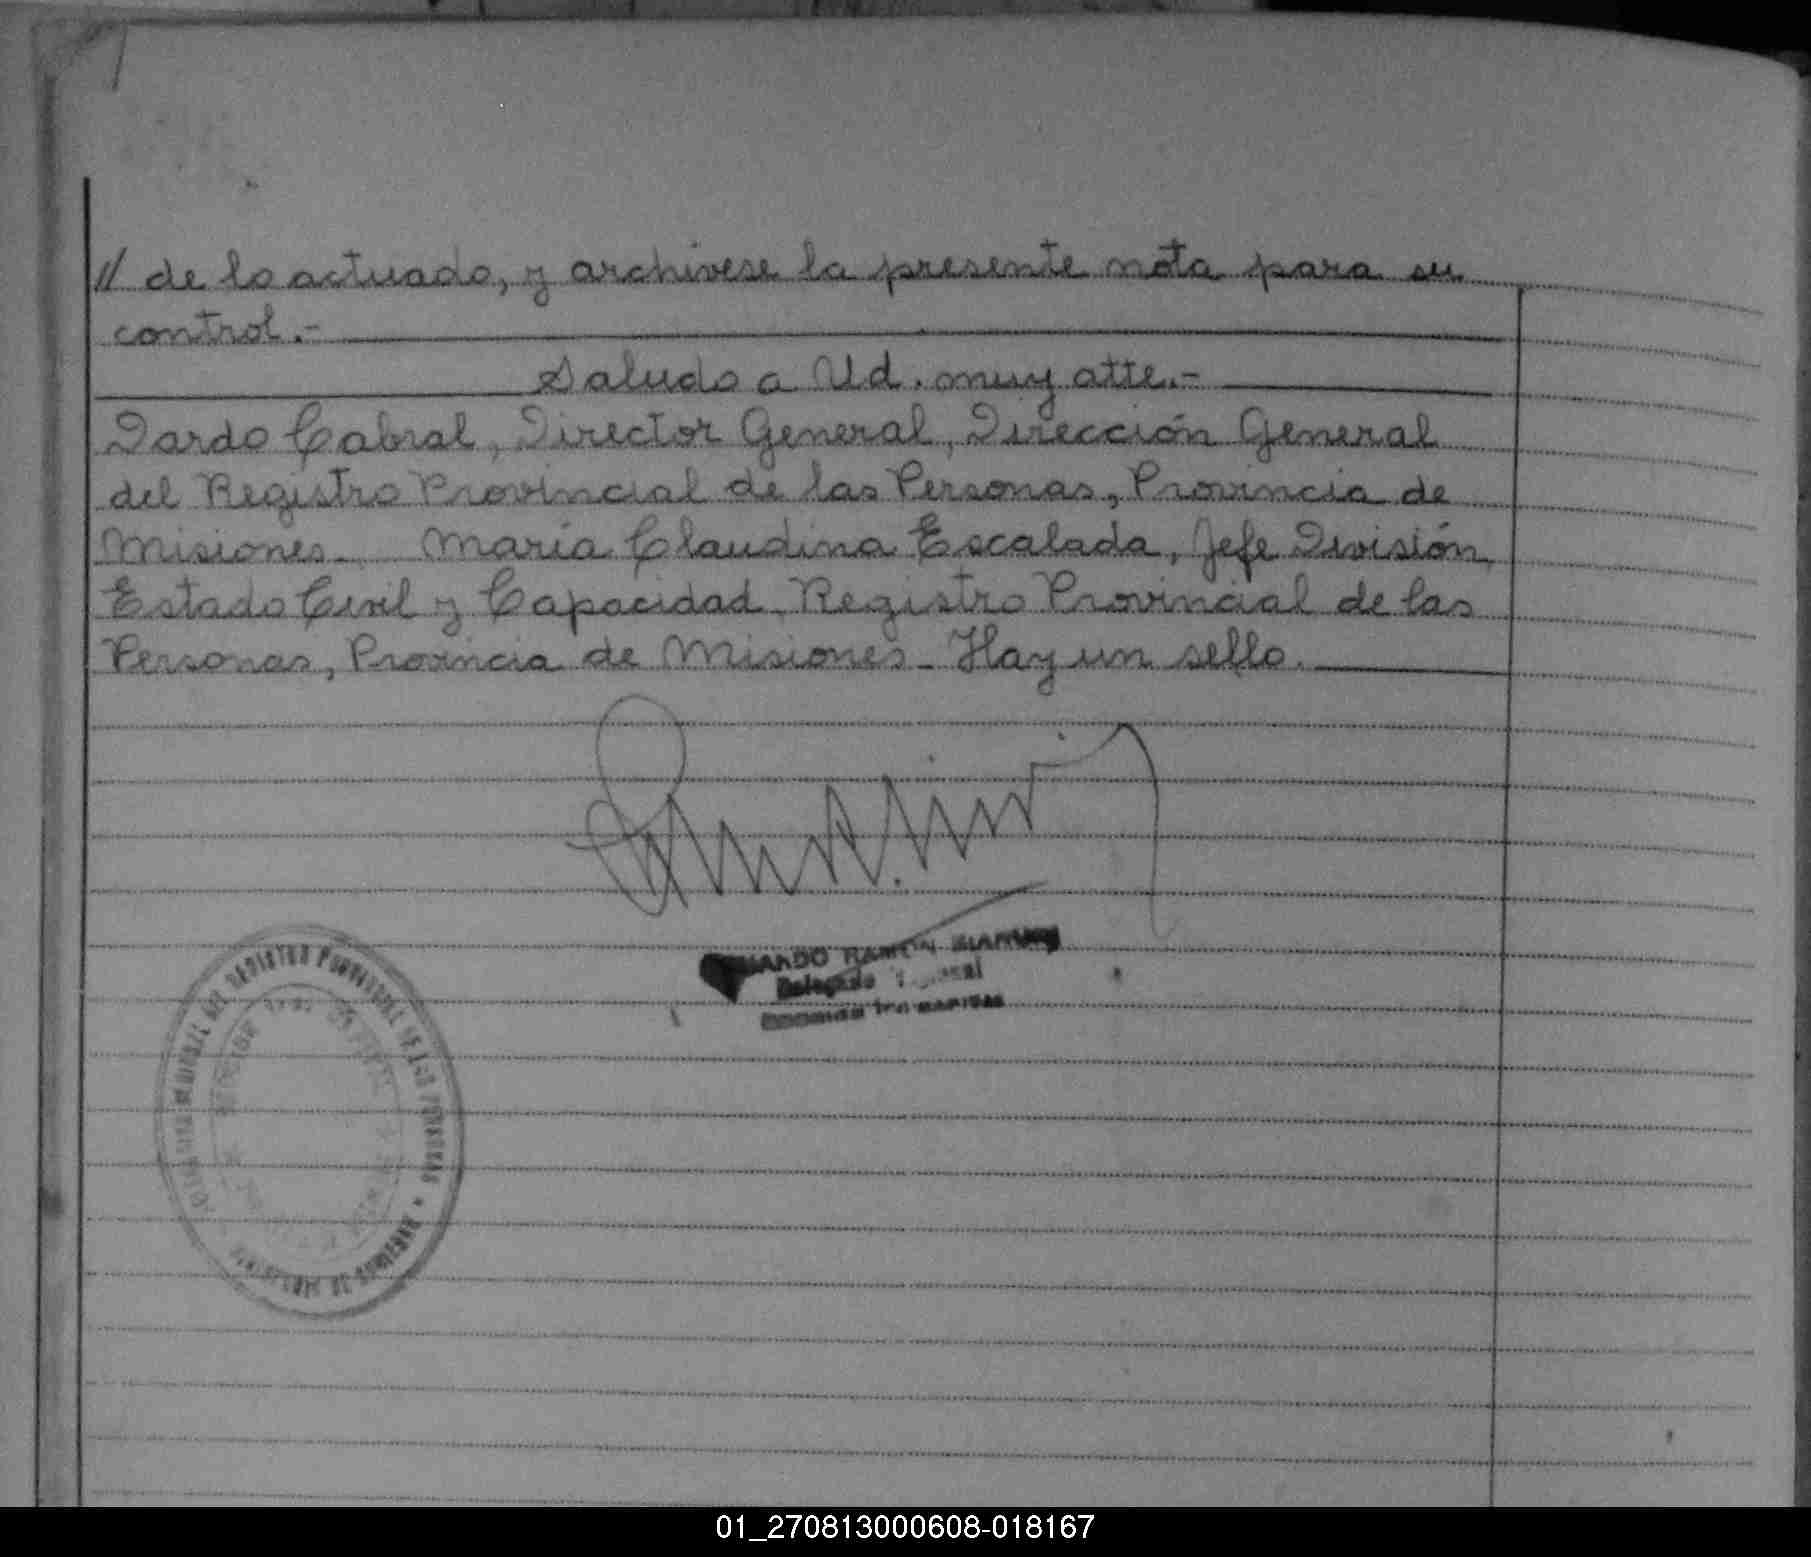 // de lo actuado, y archivese la presente nota para su
control.-
Saludo a Ud. muy atte.-
Dardo Cabral, Director General, Dirección General
del Registro Provincial de las Personas, Provincia de
Misiones. María Claudina Escalada, Jefe División
Estado Civil y Capacidad, Registro Provincial de las
Personas, Provincia de Misiones - Hay un sello.
RAMON
Delegado
GENERAL DEL REGISTRO PROVINCIAL DE LAS PERSONAS
01_270813000608-018167